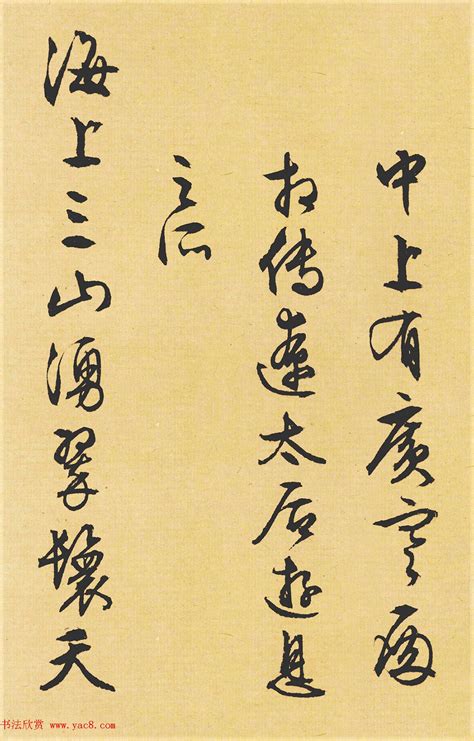 中上有廣寒殿
相傳遼太后遊息
之所
海上三山湧翠鬟天
书法欣赏 www.yac8.com